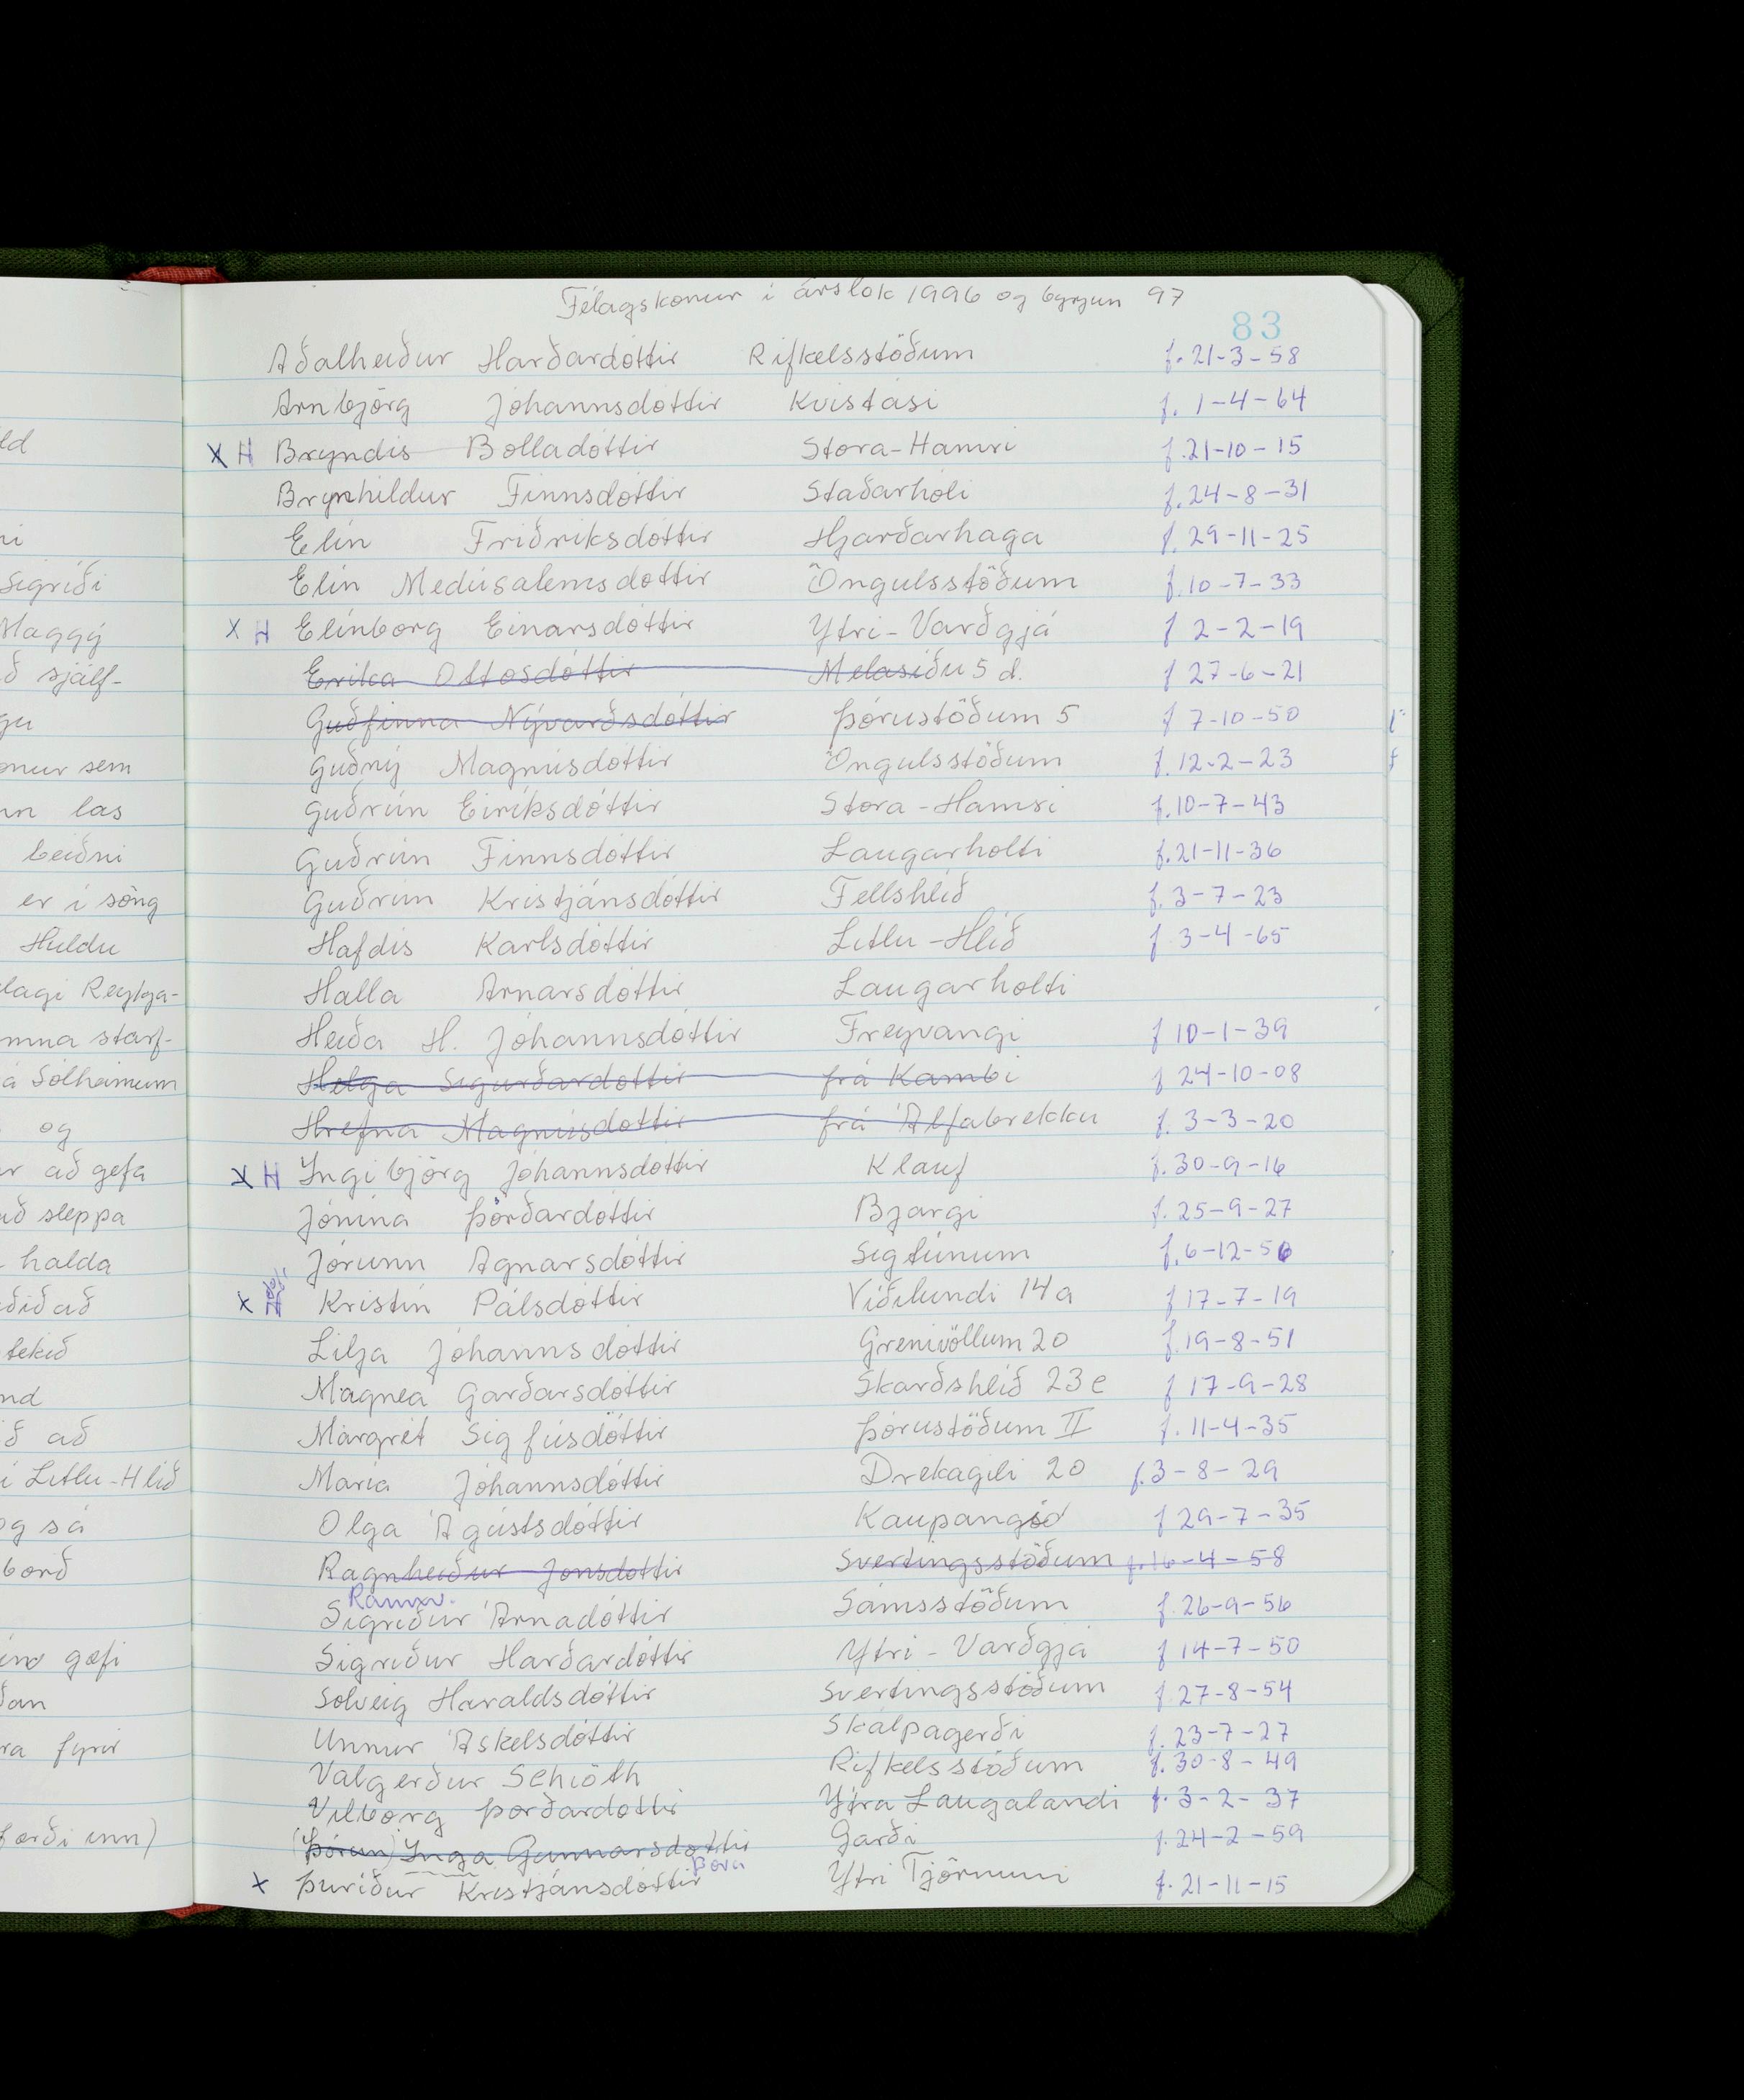 Félagskonur í árslok 1996 og byrjun 97
83
Aðalheiður Harðardóttir Rifkelsstöðum f. 21-3-58
Arnbjörg Jóhannsdóttir Kvistási f. 1-4-64
X H Bryndís Bolladóttir Stóra-Hamri f. 21-10-15
Brynhildur Finnsdóttir Staðarhóli f. 24-8-31
Elín Friðriksdóttir Hjarðarhaga f. 29-11-25
Elín Medúsalemsdóttir Öngulsstöðum f. 10-7-33
X H Elínborg Einarsdóttir Ytri-Varðgjá f 2-2-19
Erika Ottosdóttir Melasíðu 5 d. f 27-6-21
Guðfinna Nývarðsdóttir Þórustöðum 5 f 7-10-50
Guðný Magnúsdóttir Öngulsstöðum f. 12-2-23
Guðrún Eiríksdóttir Stóra-Hamri f. 10-7-43
Guðrún Finnsdóttir Laugarholti f. 21-11-36
Guðrún Kristjánsdóttir Fellshlíð f. 3-7-23
Hafdís Karlsdóttir Litlu-Hlíð f. 3-4-65
Halla Arnarsdóttir Laugarholti
Heiða H. Jóhannsdóttir Freyvangi f 10-1-39
Helga Sigurðardóttir frá Kambi f 24-10-08
Hrefna Magnúsdóttir frá Álfabrekku f. 3-3-20
X H Ingibjörg Jóhannsdóttir Klauf f. 30-9-16
Jónína Þórðardóttir Bjargi f. 25-9-27
Jórunn Agnarsdóttir Sigtúnum f. 6-12-56
X Kristín Pálsdóttir Víðilundi 14a f 17-7-19
Lilja Jóhannsdóttir Grenivöllum 20 f. 19-8-51
Magnea Garðarsdóttir Skarðshlíð 23e f 17-9-28
Margrét Sigfúsdóttir Þórustöðum II f. 11-4-35
María Jóhannsdóttir Drekagili 20 f. 3-8-29
Olga Ágústsdóttir Kaupangi f 29-7-35
Ragnheiður Jónsdóttir Svertingsstöðum f. 16-4-58
Rannv.
Sigríður Árnadóttir Sámsstöðum f. 26-9-56
Sigríður Harðardóttir Ytri-Varðgjá f 14-7-50
Solveig Haraldsdóttir Svertingsstöðum f. 27-8-54
Unnur Áskelsdóttir Skálpagerði f. 23-7-27
Valgerður Schiöth Rifkelsstöðum f. 30-8-49
Vilborg Þórðardóttir Ytra Laugalandi f. 3-2-37
(Þórun) Inga Gunnarsdóttir Garði f. 24-2-59
Þóra
X Þuríður Kristjánsdóttir Ytri Tjörnum f. 21-11-15
ld
ni
Sigríði
Maggý
ð sjálf-
gu
onur sem
nn las
beiðni
er í söng
Huldu
lagi Reykja-
mna starf-
á Sólheimum
og
ur að gefa
að sleppa
halda
ðið að
tekið
nd
ð að
í Litlu-Hlíð
og sá
borð
gæfi
ðan
ra fyrir
færði inn)